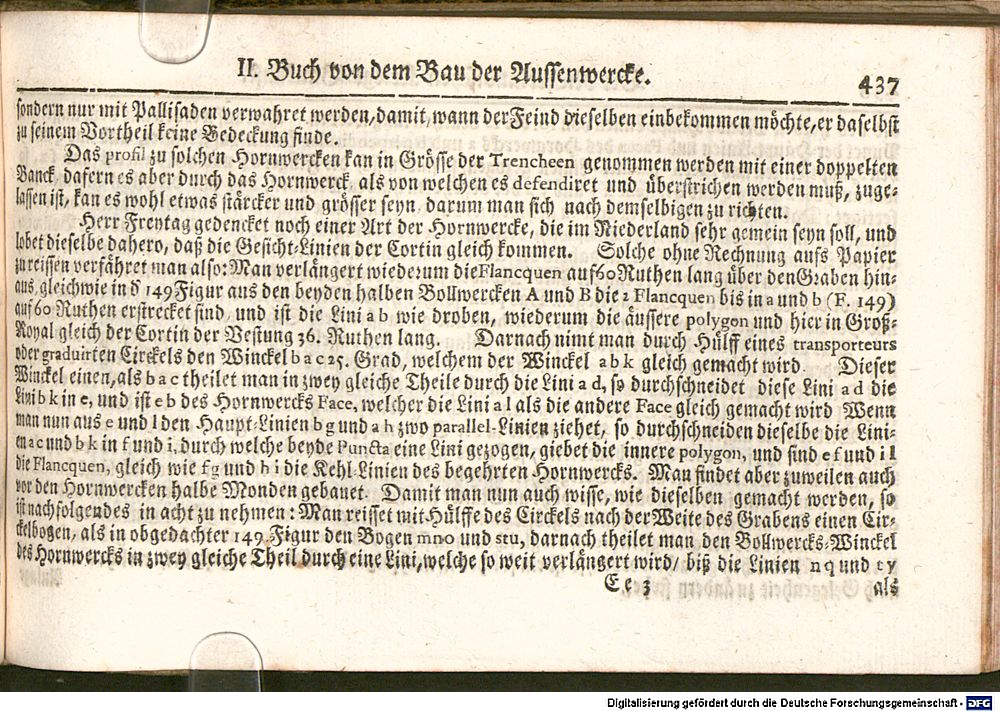 II. Buch von dem Bau der Aussenwercke. 437
sondern nur mit Pallisaden verwahret werden, damit, wann der Feind dieselben einbekommen möchte, er daselbst
zu seinem Vortheil keine Bedeckung finde.
Das profil zu solchen Hornwercken kan in Grösse der Trencheen genommen werden mit einer doppelten
Banck, dafern es aber durch das Hornwerck, als von welchen es defendiret und überstrichen werden muß, zuge-
lassen ist, kan es wohl etwas stärcker und grösser seyn, darum man sich nach demselbigen zu richten.
Herr Freytag gedencket noch einer Art der Hornwercke, die im Niederland sehr gemein seyn soll, und
lobet dieselbe dahero, daß die Gesicht-Linien der Cortin gleich kommen. Solche ohne Rechnung aufs Papier
zu reissen verfähret man also: Man verlängert wiederum die Flancquen auf 60 Ruthen lang über den Graben hin-
aus, gleichwie in d 149 Figur aus den beyden halben Bollwercken A und B die 2 Flancquen bis in a und b (F. 149)
auf 60 Ruthen erstrecket sind, und ist die Lini a b wie droben, wiederum die äussere polygon und hier in Groß-
Royal gleich der Cortin der Vestung 36. Ruthen lang. Darnach nimt man durch Hülff eines transporteurs
oder graduirten Circkels den Winckel b a c 25. Grad, welchem der Winckel a b k gleich gemacht wird. Dieser
Winckel einen, als b a c theilet man in zwey gleiche Theile durch die Lini a d, so durchschneidet diese Lini a d die
Lini b k in e, und ist e b des Hornwercks Face, welcher die Lini a l als die andere Face gleich gemacht wird Wenn
man nun aus e und l den Haupt-Linien b g und a h zwo parallel-Linien ziehet, so durchschneiden dieselbe die Lini-
en a c und b k in f und i, durch welche beyde Puncta eine Lini gezogen, giebet die innere polygon, und sind e f und i l
die Flancquen, gleich wie f g und h i die Kehl-Linien des begehrten Hornwercks. Man findet aber zuweilen auch
vor den Hornwercken halbe Monden gebauet. Damit man nun auch wisse, wie dieselben gemacht werden, so
ist nachfolgendes in acht zu nehmen: Man reisset mit Hülffe des Circkels nach der Weite des Grabens einen Cir-
ckelbogen, als in obgedachter 149. Figur den Bogen mno und stu, darnach theilet man den Bollwercks-Winckel
des Hornwercks in zwey gleiche Theil durch eine Lini, welche so weit verlängert wird/ biß die Linien n q und t y
E e 3 als
Digitalisierung gefördert durch die Deutsche Forschungsgemeinschaft - DFG